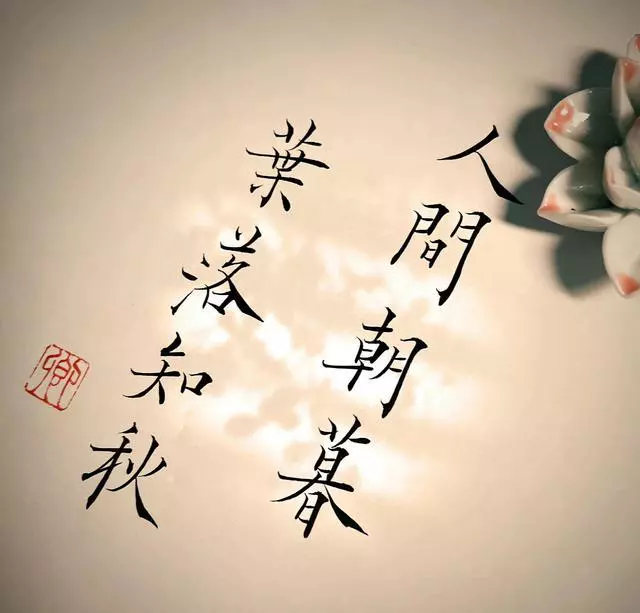 人間朝暮
葉落知秋
卿